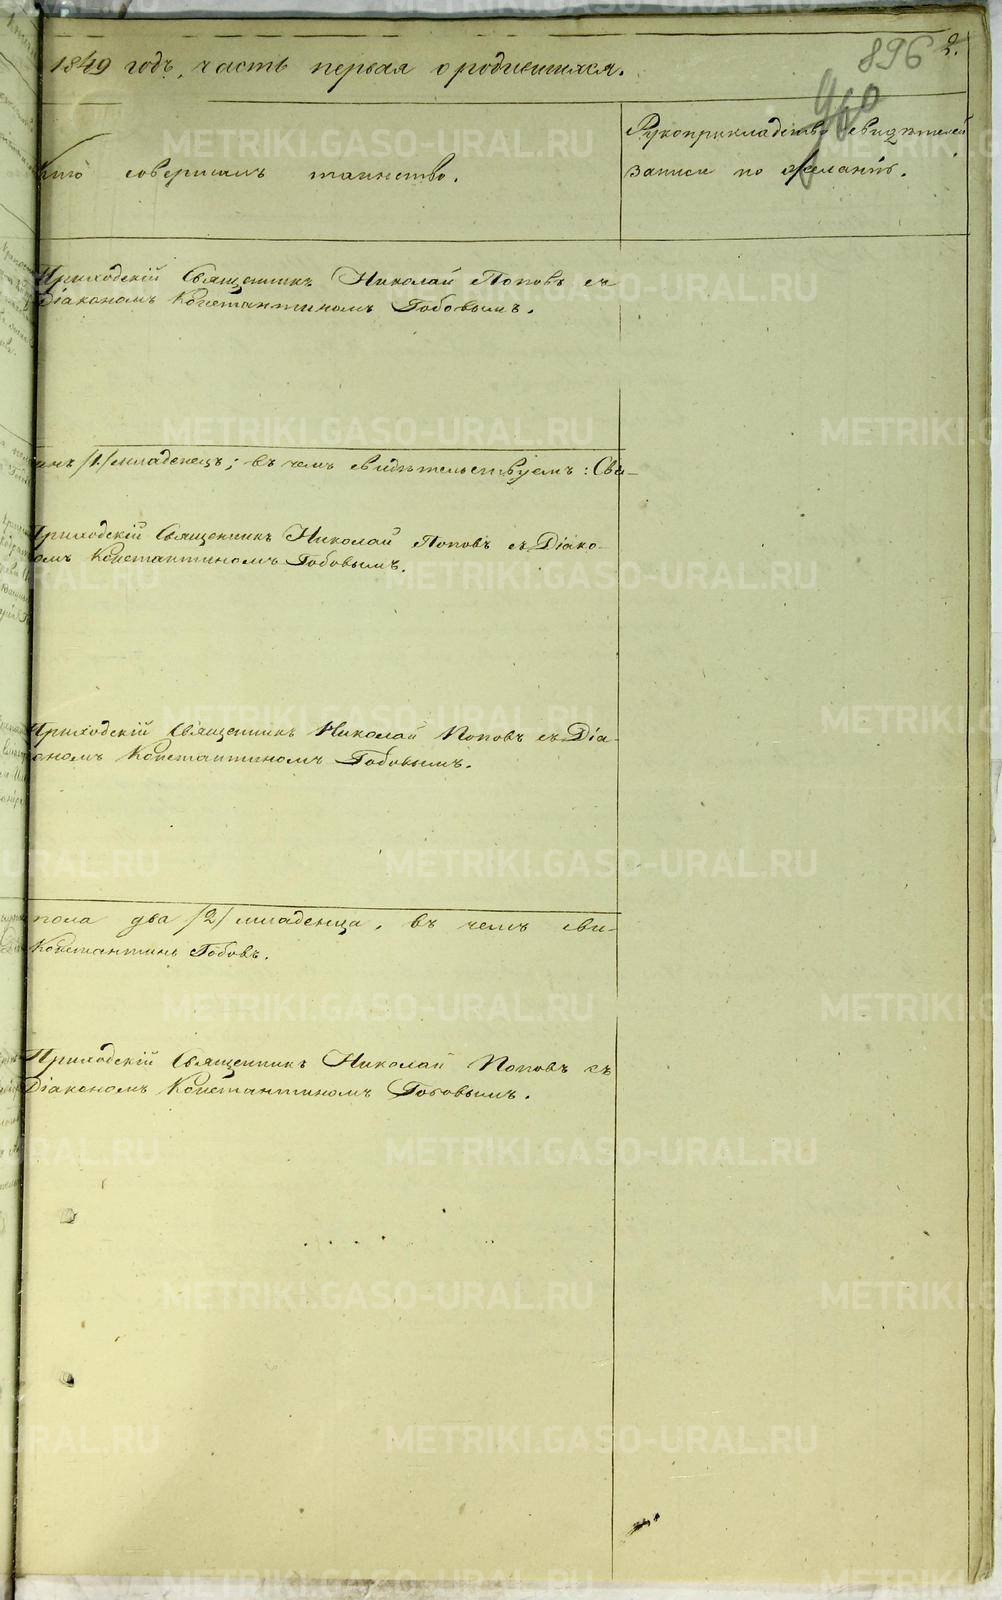 1849 годъ, часть первая о родившихся.
896 2.
960
Кто совершалъ таинство.
Рукоприкладство свидѣтелей
записи по желанію.
Приходскій Священникъ Николай Поповъ съ
Діакономъ Константиномъ Гобовымъ.
/1/ младенецъ; въ чемъ свидѣтельствуемъ: Свя-
Приходскій Священникъ Николай Поповъ съ Діако-
номъ Константиномъ Гобовымъ.
Приходскій Священникъ Николай Поповъ съ Діа-
кономъ Константиномъ Гобовымъ.
пола два /2/ младенца, въ чемъ сви-
Константинъ Гобовъ.
Приходскій Священникъ Николай Поповъ съ
Діакономъ Константиномъ Гобовымъ.
METRIKI.GASO-URAL.RU